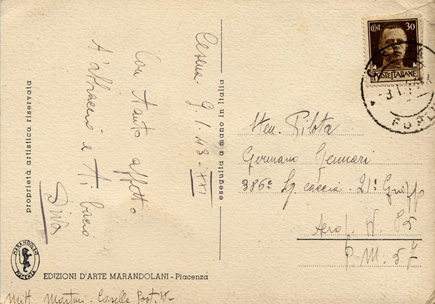 CENT. 30
POSTE ITALIANE
FORLI
Cesena 9.1.43-XXI
Con tanto affetto
t'abbraccio e ti bacio
Ten. Pilota
Germano Gennari
386a Sq. caccia - 21° Gruppo
Aerop. N. 85
P.M. 57
proprietà artistica riservata
eseguita a mano in Italia
MARANDOLANI
PIACENZA
EDIZIONI D'ARTE MARANDOLANI - Piacenza
Mitt. Martini - Casella Post.